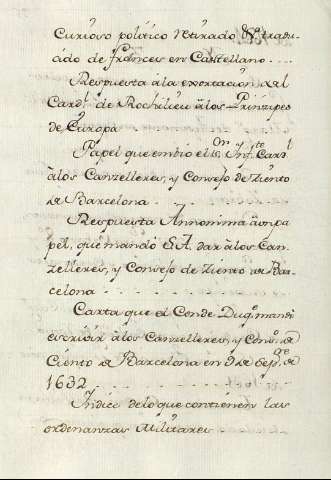 Curioso politico retirado &c. tradu-
cido de frances en Castellano....
Respuesta à la exortacion del
Card.l de Rochelieu à los Prinzipes
de Europa
Papel que embió el S.mo Inf.te Card.l
à los Canzelleres, y Consejo de Ziento
de Barcelona.
Respuesta Annonima à un pa-
pel, que mandó S.A. dar à los Can-
zelleres, y Consejo de Ziento de Bar-
celona
Carta que el Conde Duq.e mandó
escrivir à los Canzelleres, y Cons.o de
Ciento de Barcelona en 9 de Sep.re de
1632
Indice de lo que contienen las
ordenanzas Militares